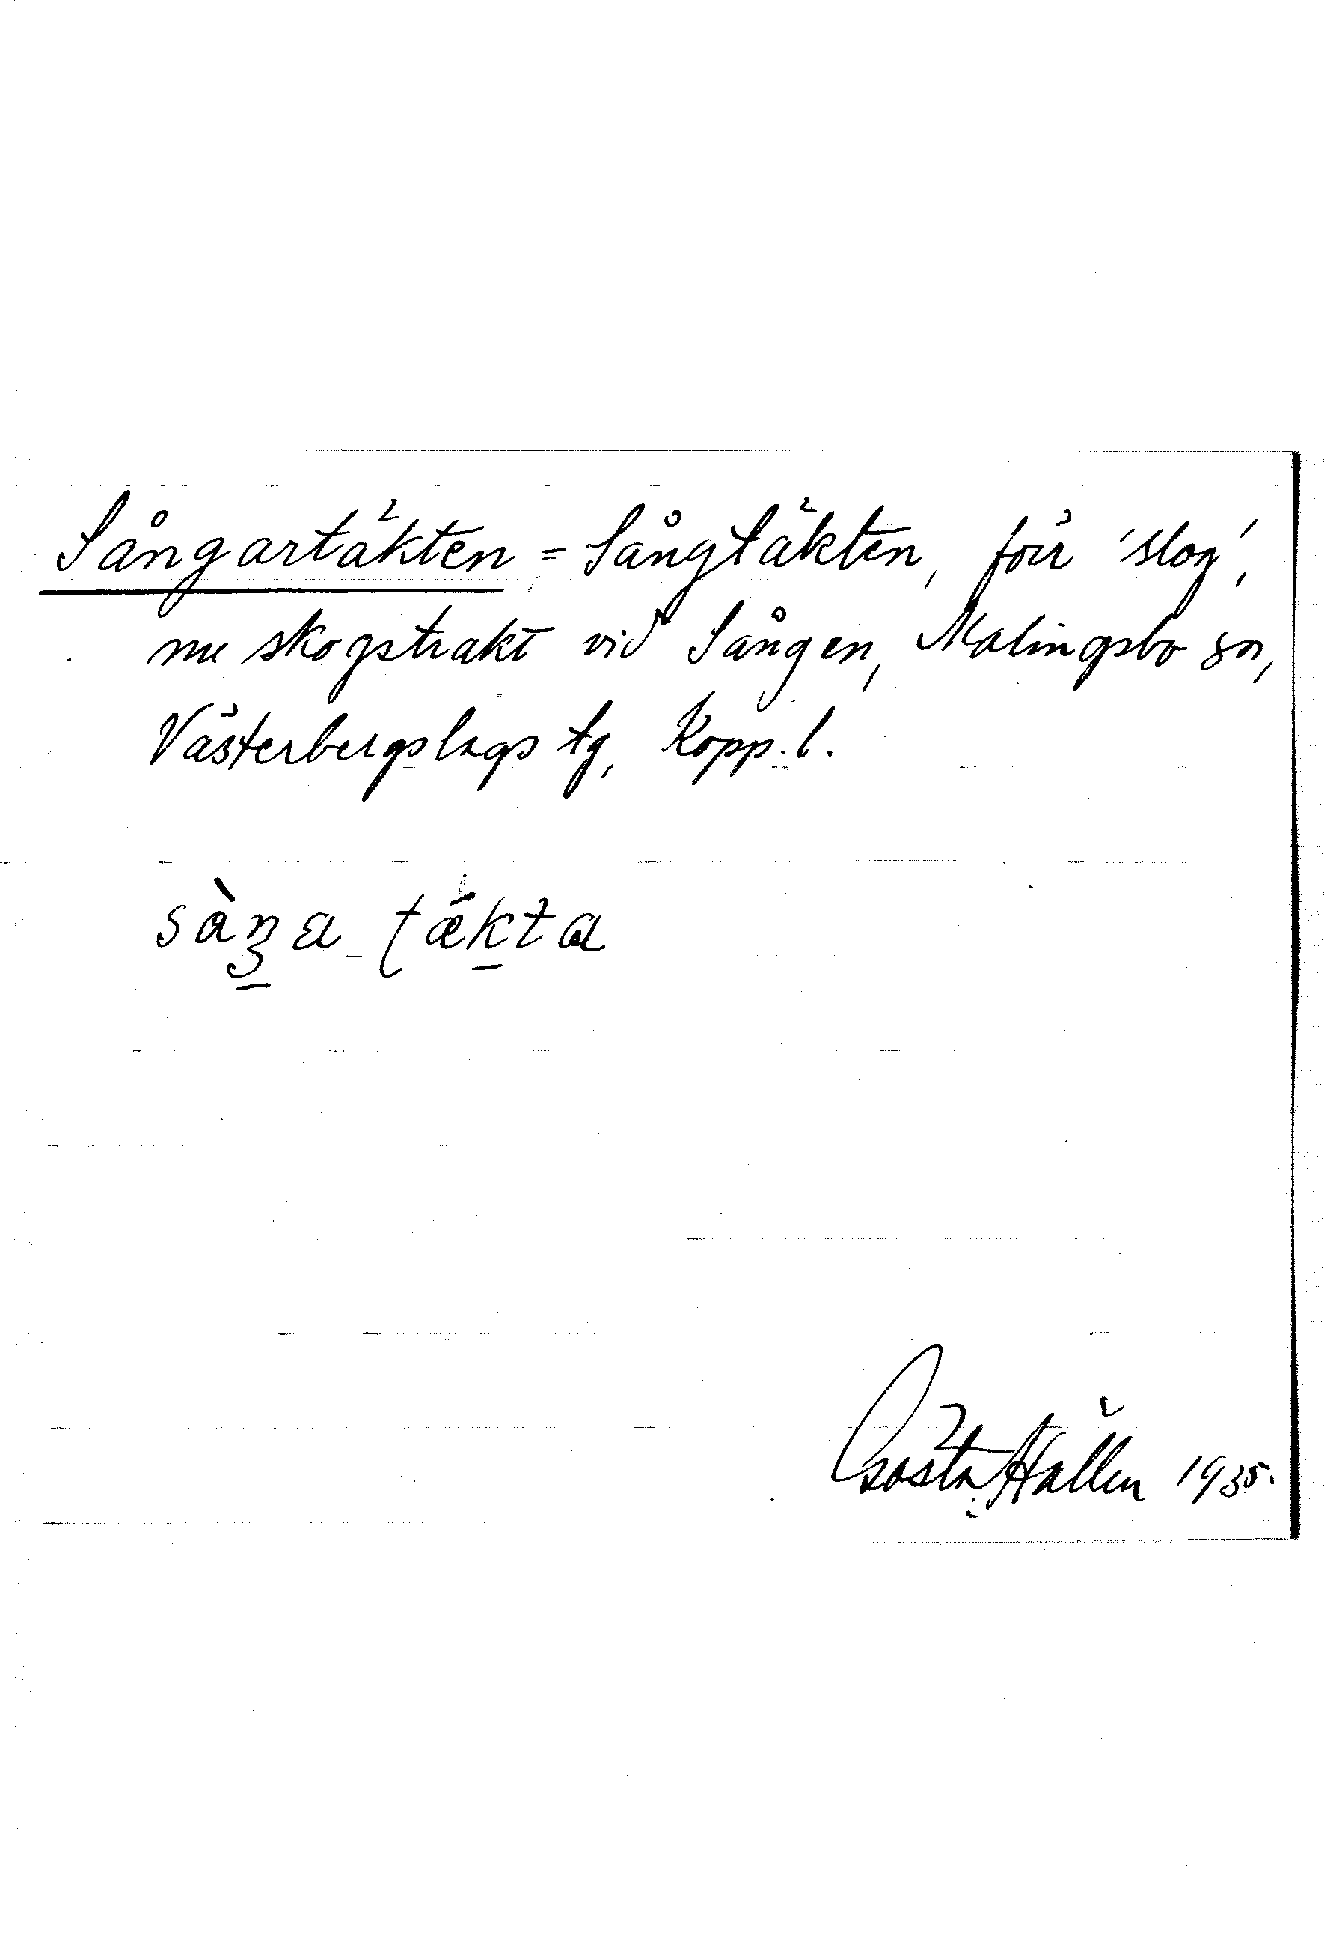 Sångartäkten = Sångtäkten, förr 'slog',
nu skogstrakt vid Sången, Malingsbo sn,
Västerbergslags tg, Kopp. l.
sàŋa tækta
Gösta Hallén 1935.